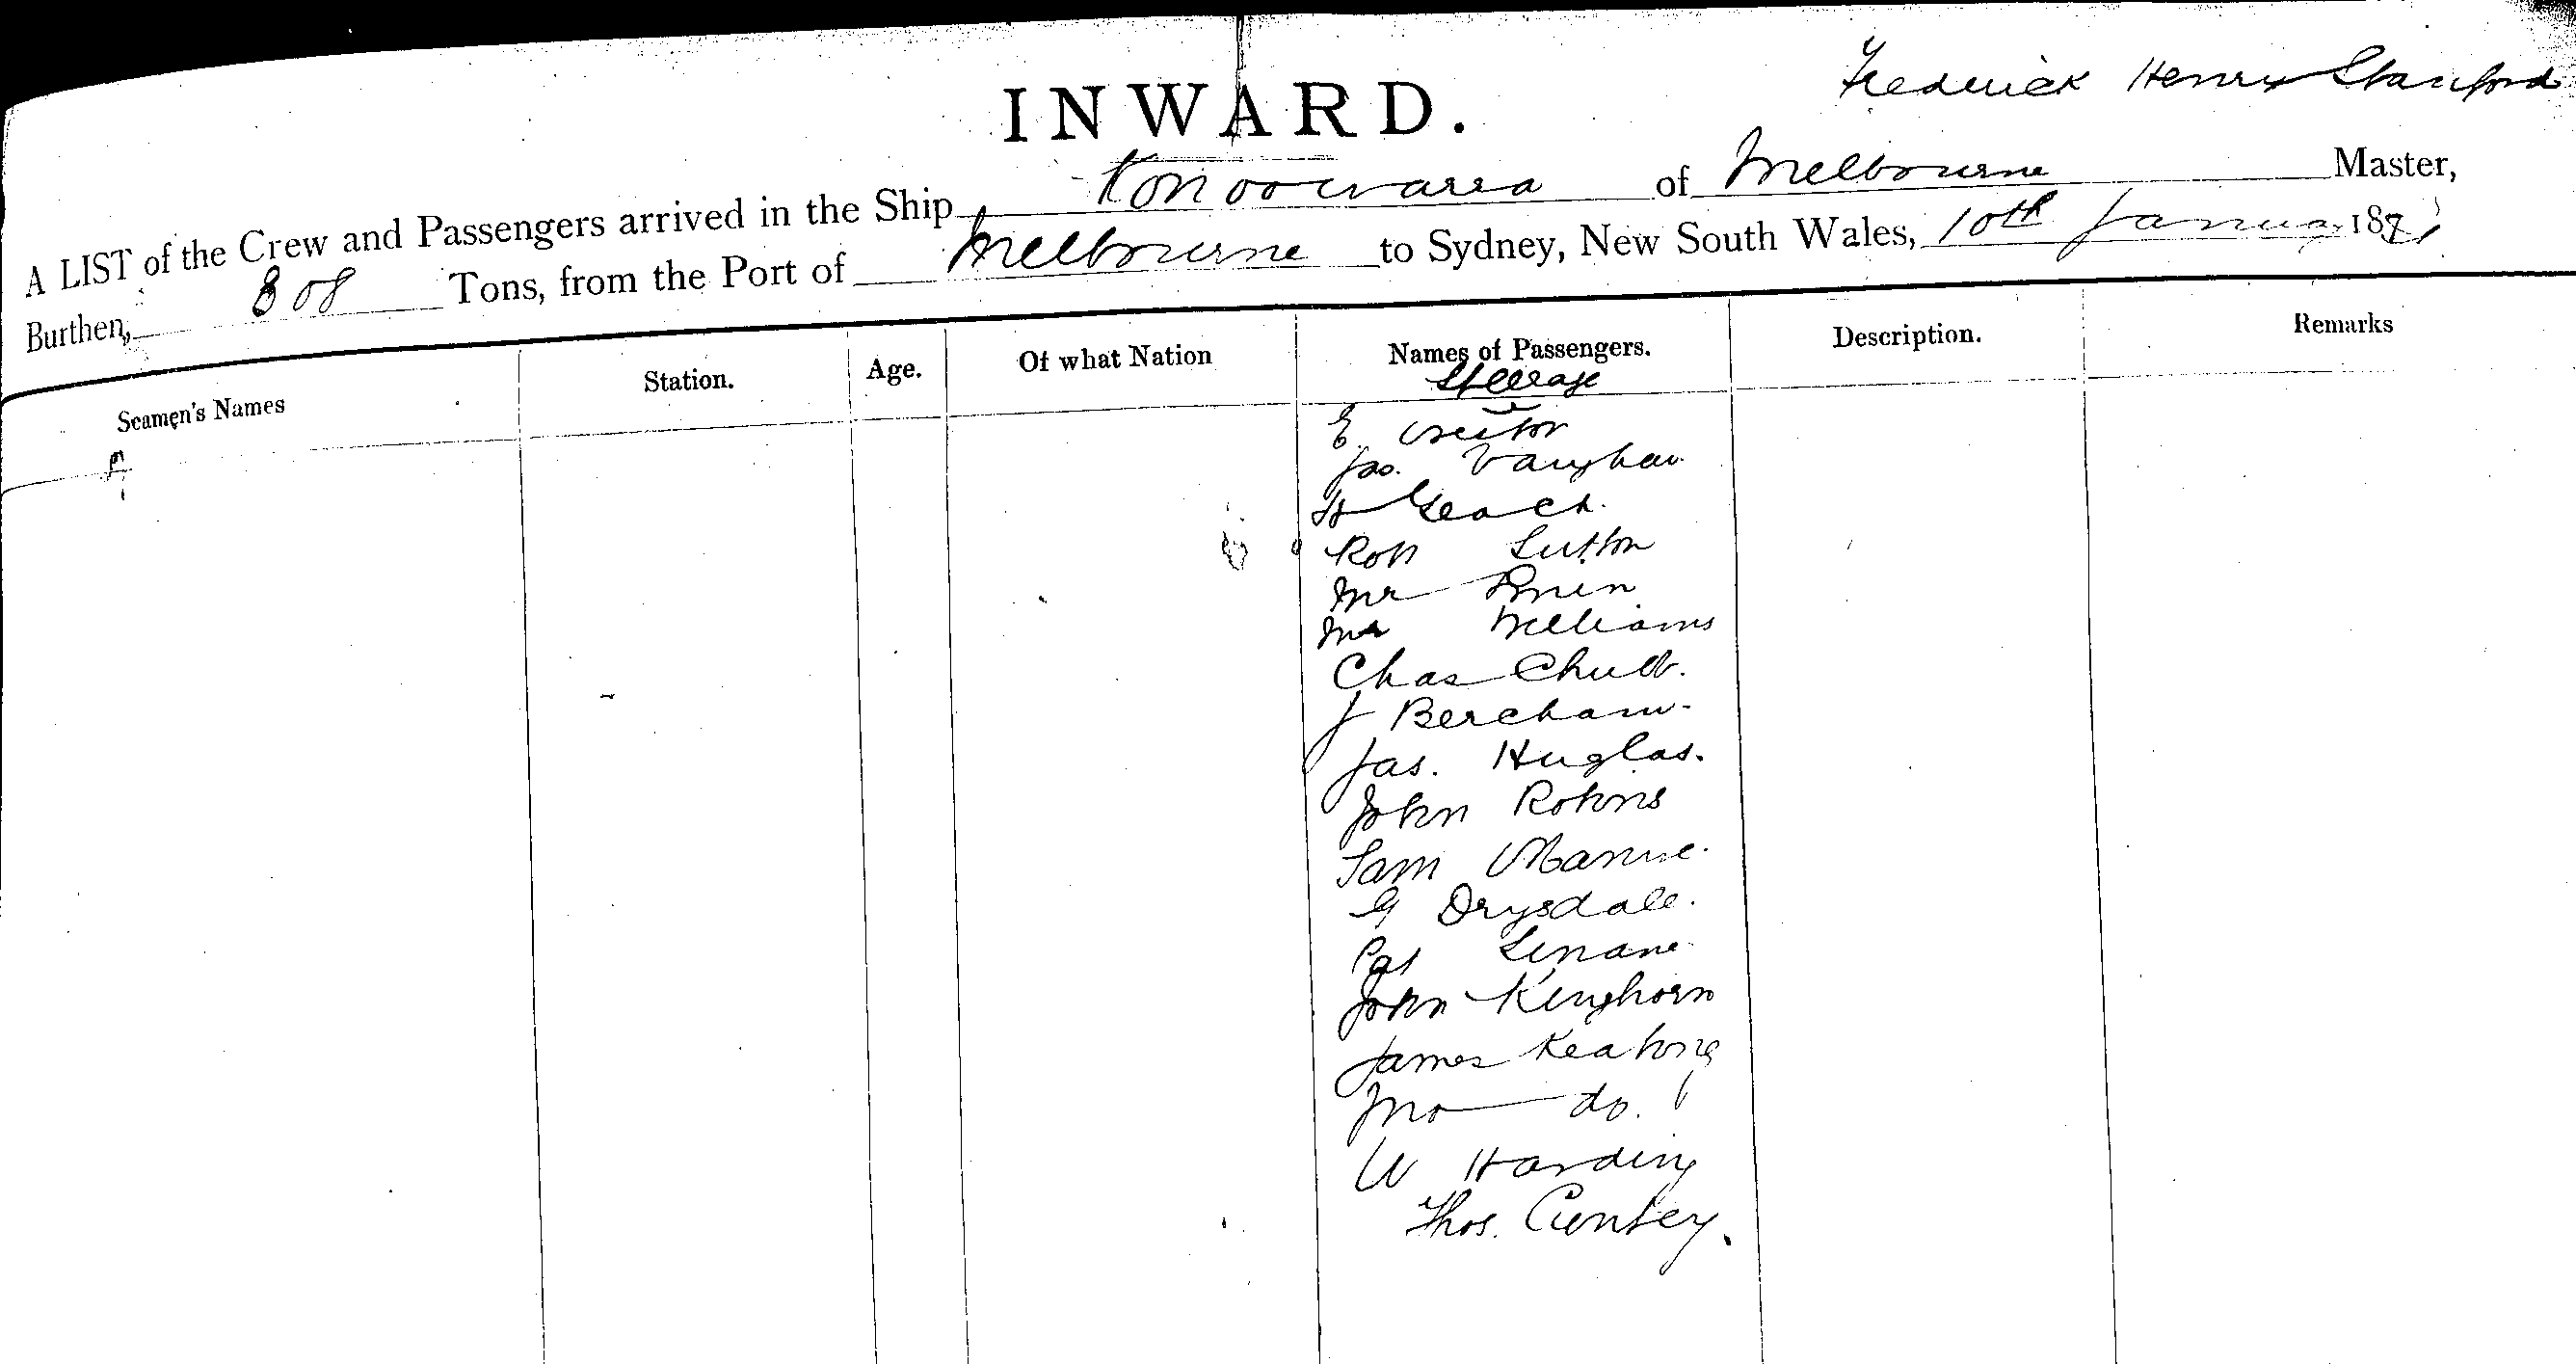 Frederick Henry Stanford
INWARD.
A LIST of the Crew and Passengers arrived in the Ship Konoowarra of Melbourne Master,
Burthen, 808 Tons, from the Port of Melbourne to Sydney, New South Wales, 10th January 187
Seamen's Names Station. Age. Of what Nation Names of Passengers. Description. Remarks
Steerage
E
Jas. Vaughan
H Geach.
Robt Sutton
Mr
Mr Williams
Chas Chubb.
J Bercham.
Jas. Huglas.
John Robins
Sam
G Drysdale.
Pat Lenane
John Kinghorn
James Keating
Jno do.
W Harding
Thos.